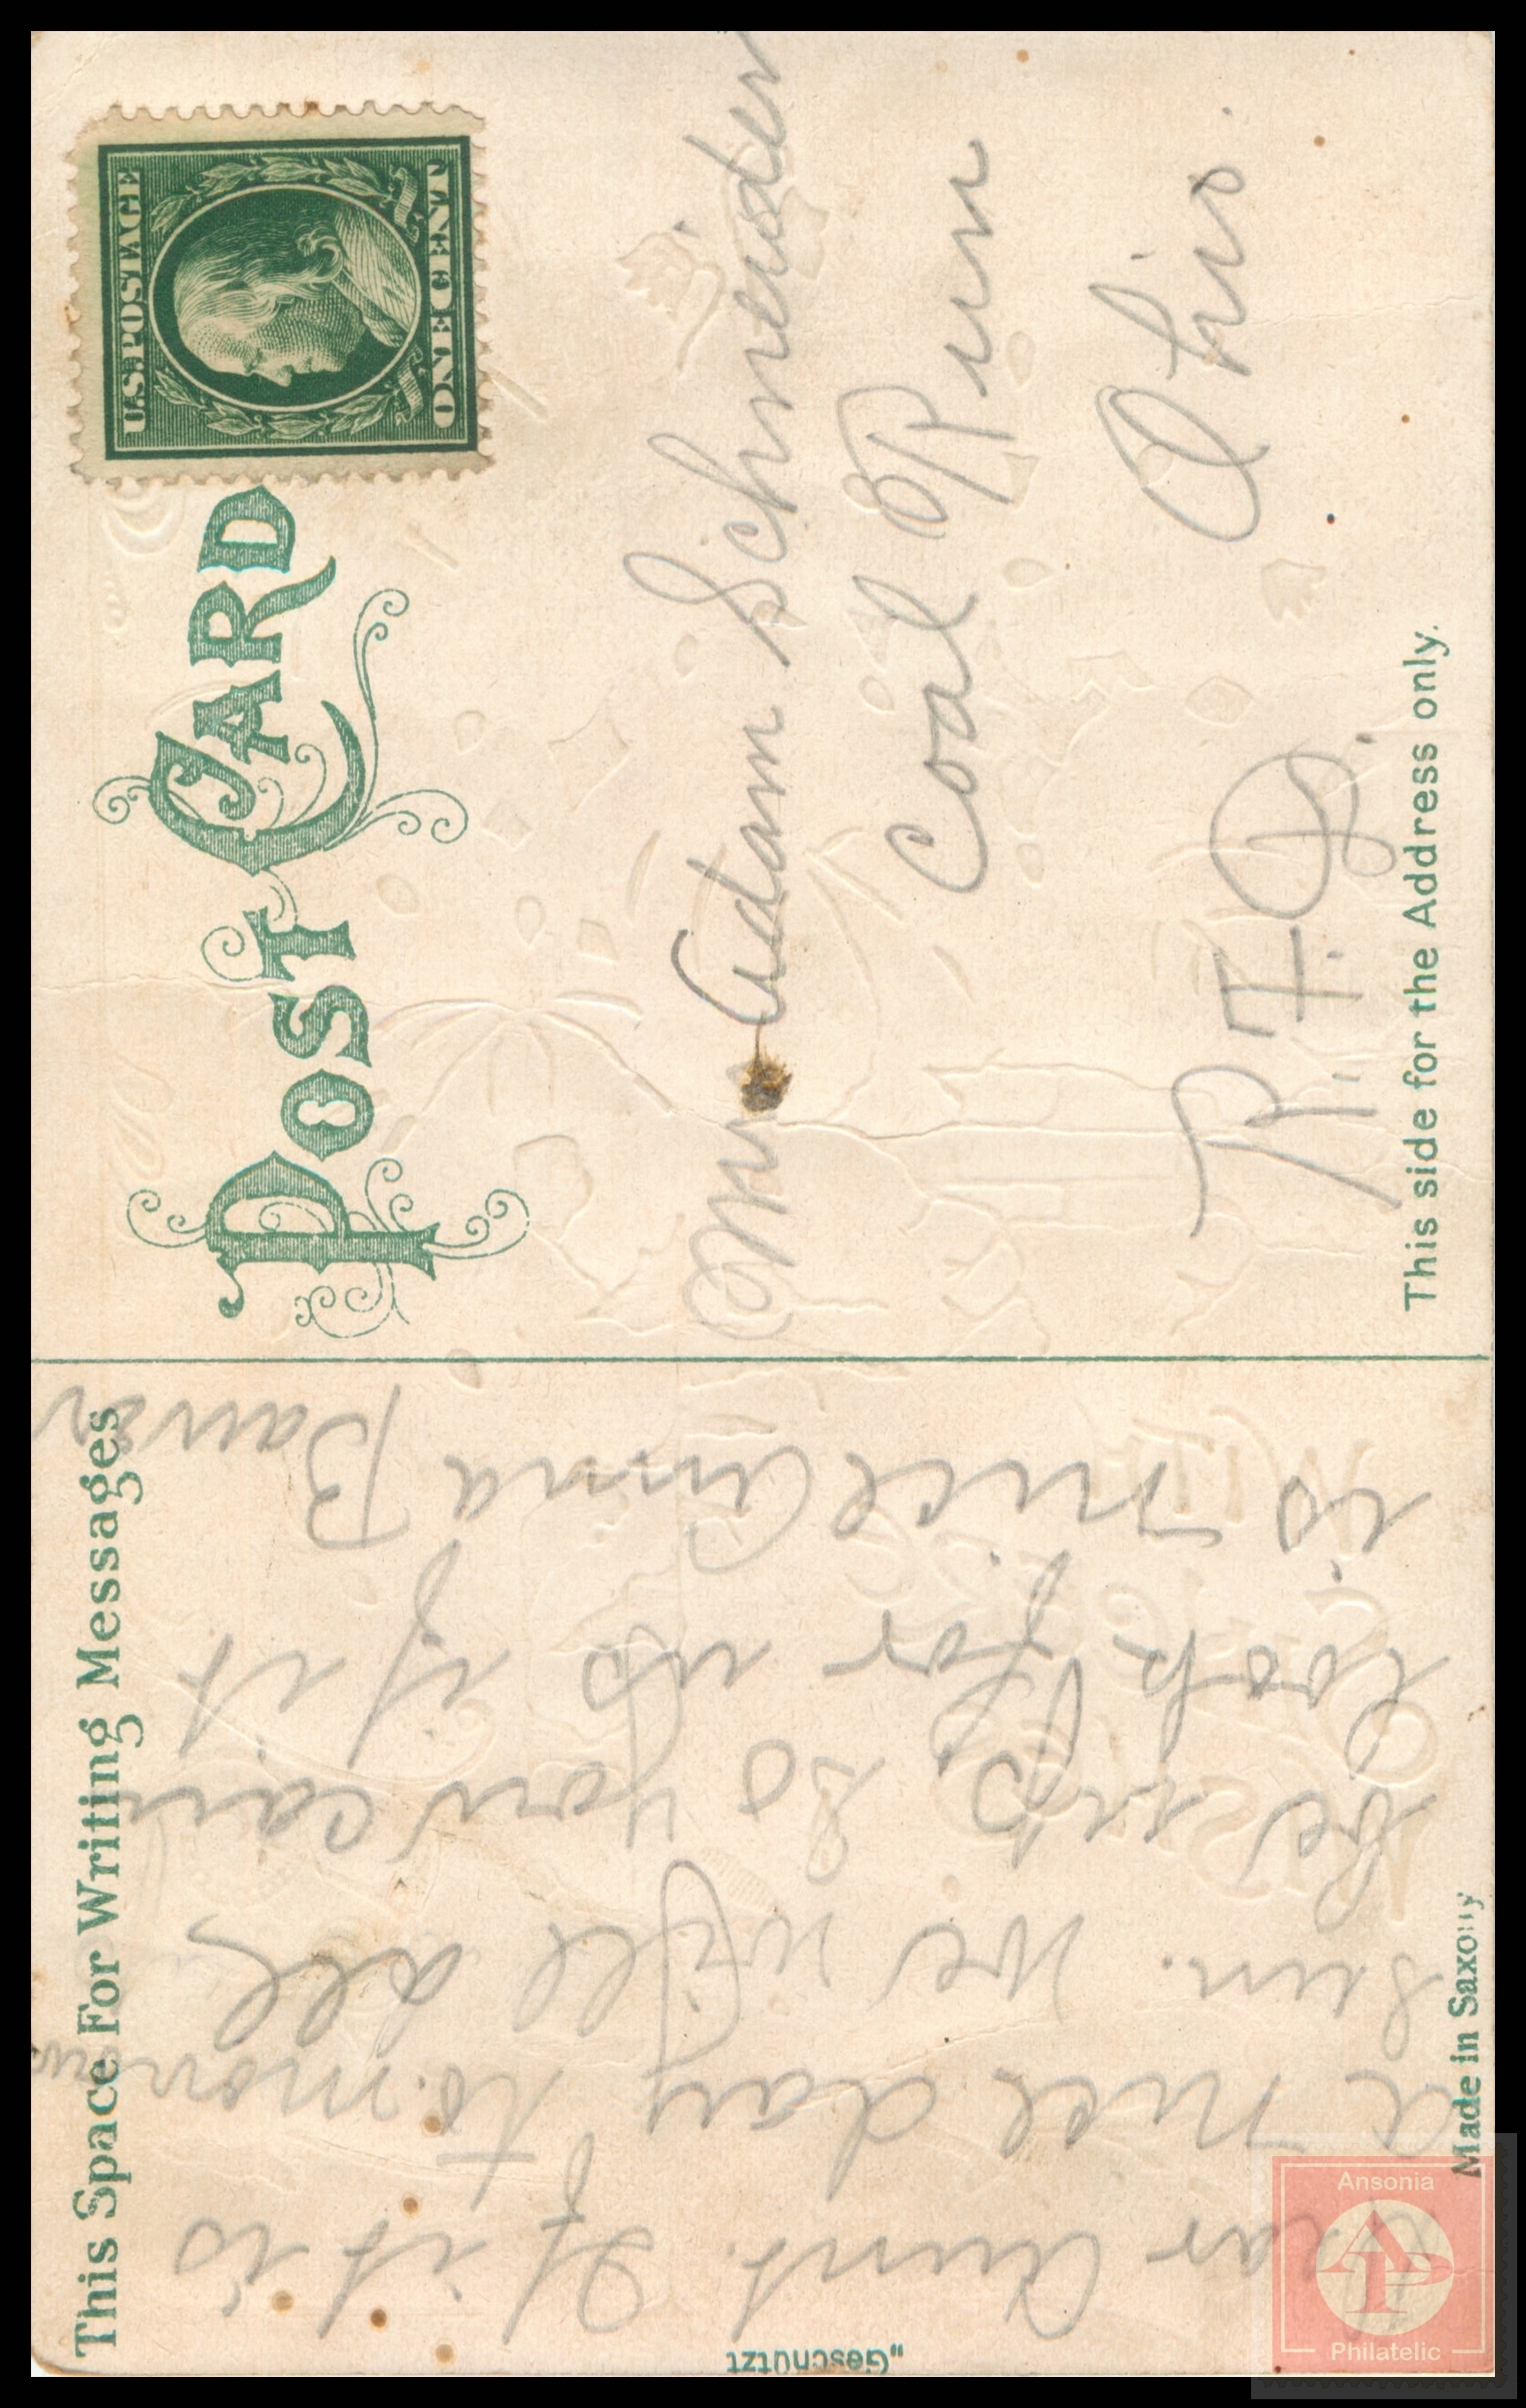 POST CARD
U.S. POSTAGE
ONE CENT
Mrs Adam Schneider
Coal Run
Ohio.
R. F. D.
This side for the Address only.
This Space For Writing Messages
Dear Aunt. If it is
a nice day to.morrow
Sun. we will all
be up so you can
look for us if it
is nice Anna Bauer
Made in Saxony
"Geschützt
Ansonia
AP
Philatelic